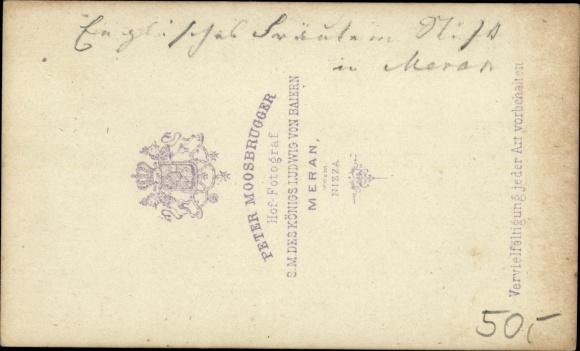 Englisches Fräulein Stift
in Meran
PETER MOOSBRUGGER
Hof-Fotograf
S.M. DES KÖNIGS LUDWIG VON BAIERN
MERAN,
NIZZA
Vervielfältigung jeder Art vorbehalten
50,-